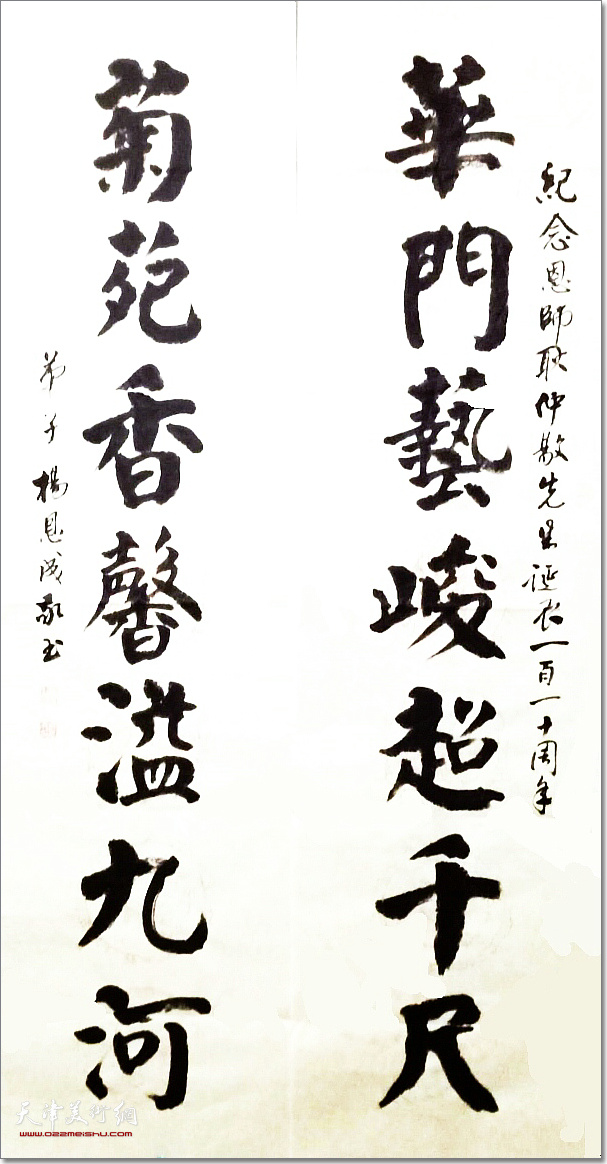 紀念恩師耿仲敭先生誕辰一百一十周年
華門藝峻超千尺
菊苑香馨溢九河
弟子楊恩成敬書
天津美術網
www.022meishu.com